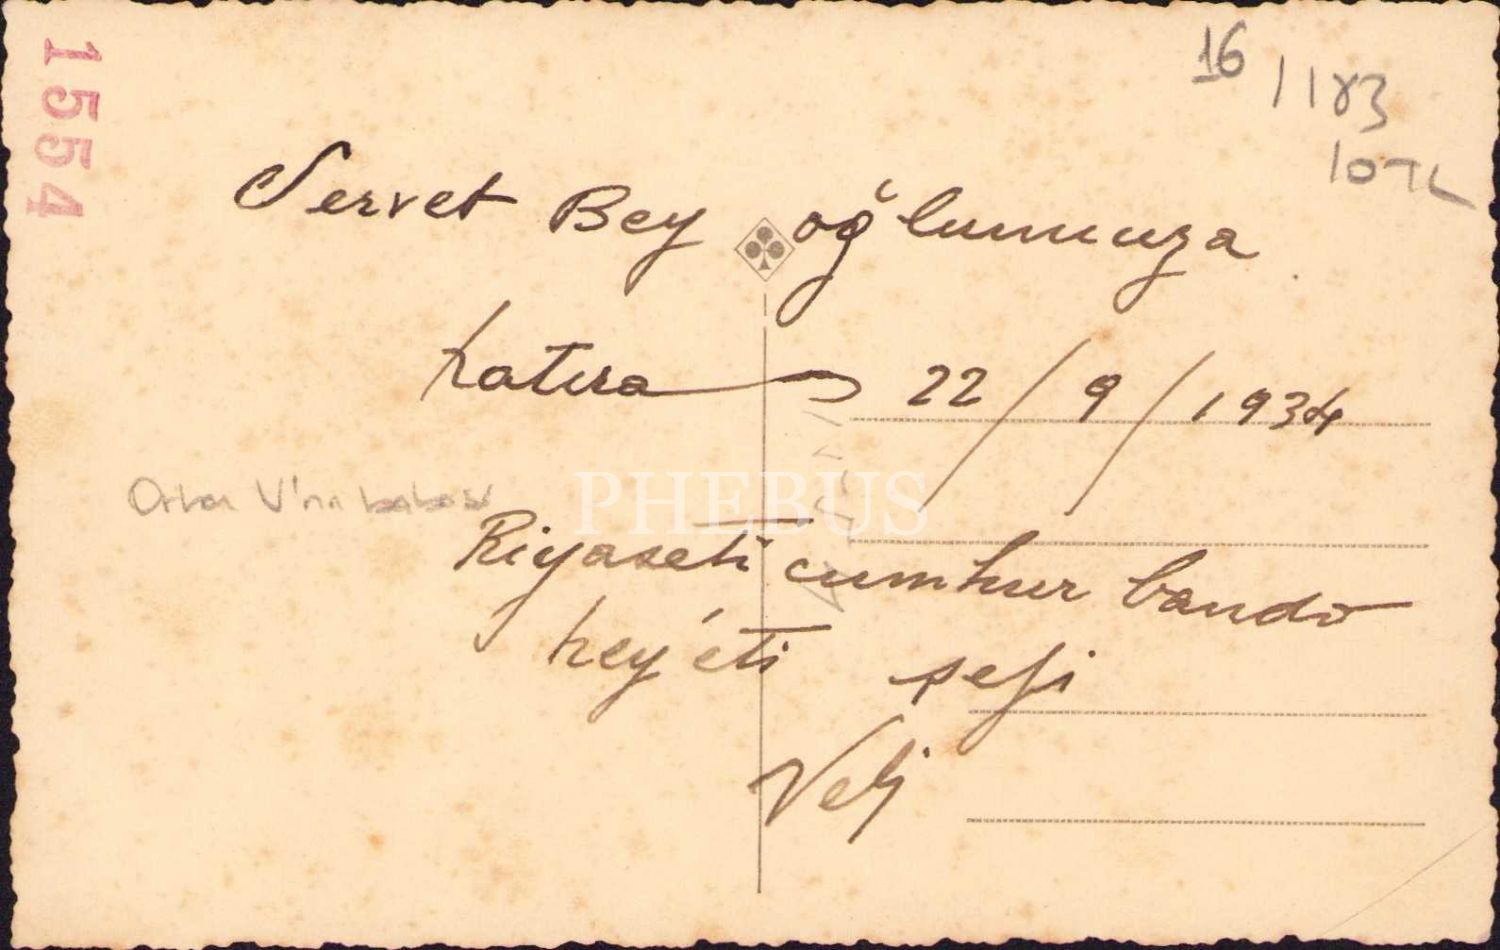 1554
16
/ 183
10TL
Servet Bey oğlumuza
hatıra 22/9/1934
Orhan V'nin babası
PHEBUS
Riyaseti cumhur bando
hey'eti şefi
Veli